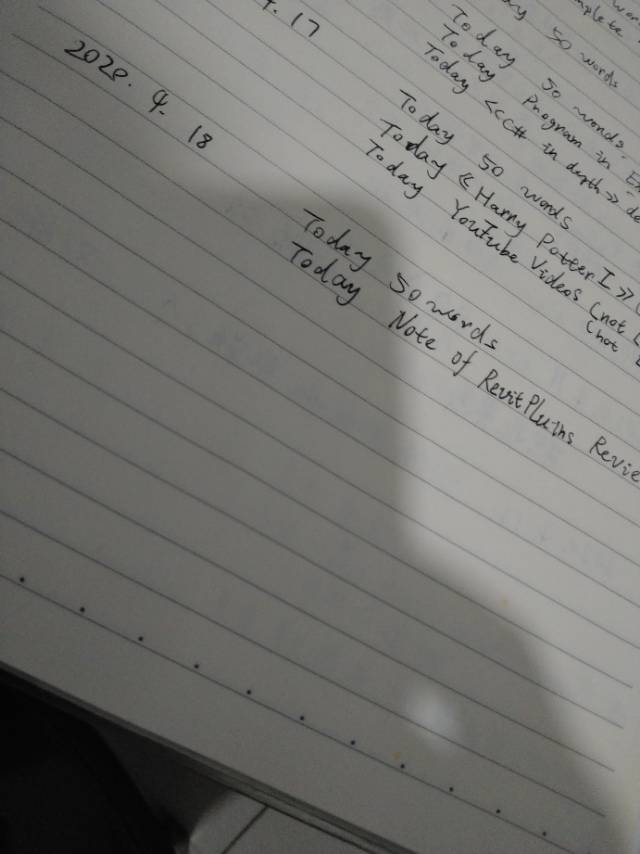 50 words
Today 50 words.
Today Program in
Today <<C# in depth>>
4. 17
Today 50 words
Today <<Harry Potter I>>
Today YouTube Videos (not
(not
4. 18
Today 50 words
Today Note of RevitPlugins Revie